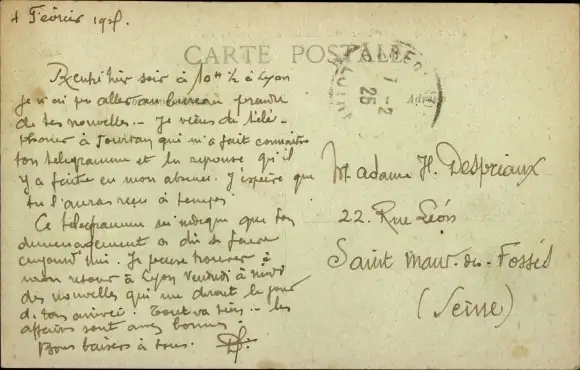 4 Février 19
CARTE POSTALE
Rentré hier soir à 10 H ½ à Lyon
je n'ai pu aller au bureau prendre
de tes nouvelles. Je viens de télé-
phoner à qui m'a fait connaitre
ton telegramme et la reponse qu'il
y a faite en mon absence. J'espère que
tu l'auras reçu à temps.
Ce télégramme m'indique que ton
demenagement a dû se faire
aujourd'hui. Je pense trouver à
mon retour à Lyon Vendredi à midi
des nouvelles qui me diront le jour
de ton arrivée. Tout va bien - les
affaires sont assez bonnes.
Bons baisers à tous.
Adresse
7 -2
25
Madame H. Despriaux
22. Rue Léon
Saint Maur-des-Fossés
(Seine)